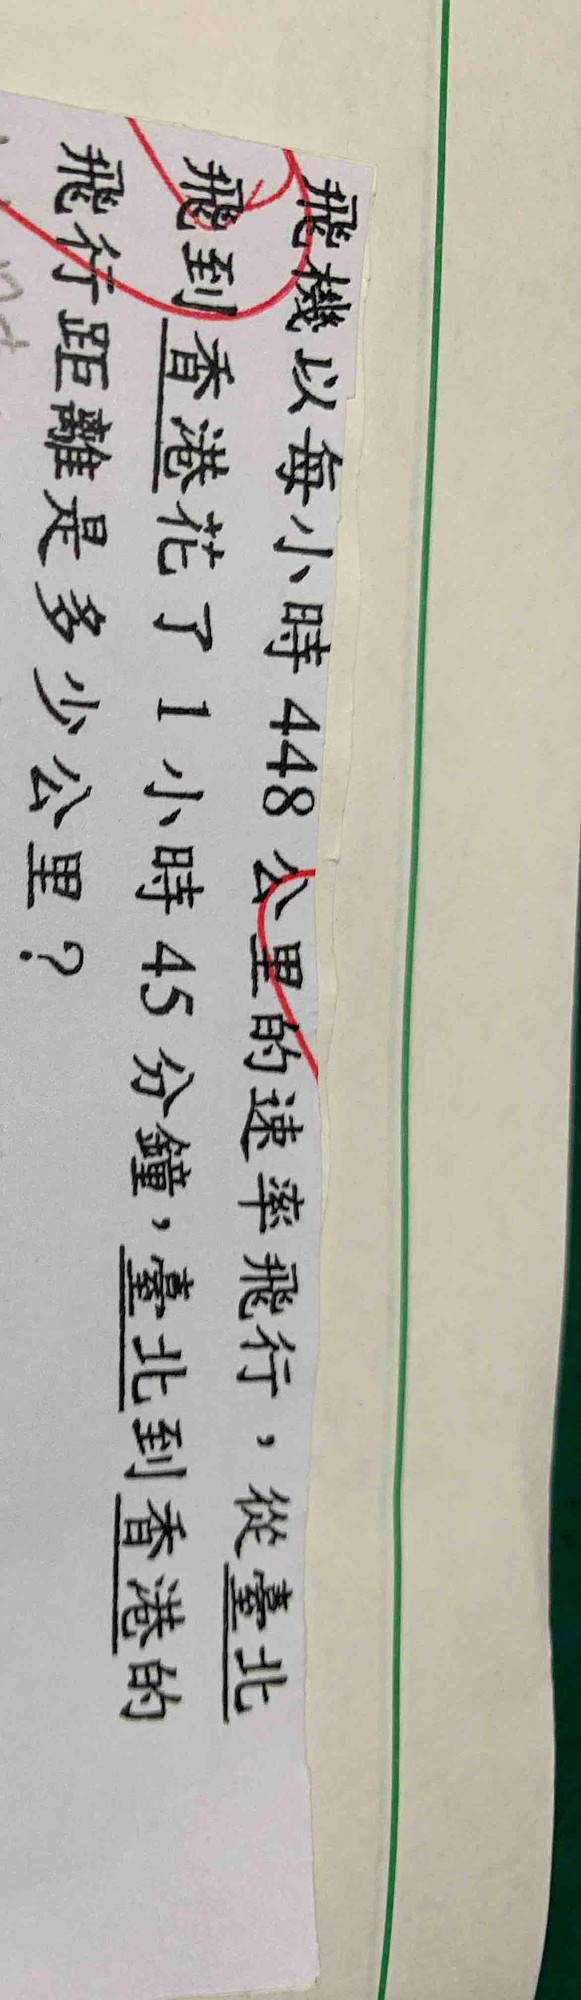 飛機以每小時448公里的速率飛行，從臺北
飛到香港花了1小時45分鐘，臺北到香港的
飛行距離是多少公里？